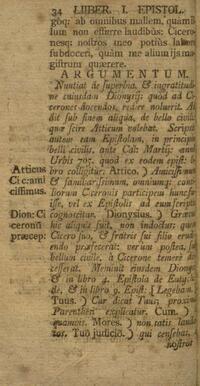 34 LIIBER. I. EPISTOL.
gòq; ab omnibus mallem, quàm
lum non esserre laudibus: Cicero-
nesq; nostros meo potiùs
subdoceri, quàm me alium ijs ma-
gistrum quærere.
ARGUMENTUM.
Nuntiat de superbia, & ingratitudi-
ne cuiusdam Dionysij: quòd ad Ci-
cerones docendos, redire noluerit. Al-
dit sub finem aliqua, de bello civili
quæ scire Atticum volebat. Scripta
autem eam Epistolam, in principio
belli civilis, ante Cal: Martij: anno
Urbis 705. quod ex eodem epist:
bro colligitur. Attico.)
Atticus & familiarissimum, omniumq;
Ci cami liorum Ciceronis participem
cissimus. isse, vel ex Epistolis ad eum
Dion: Ci cognoscitur. Dionysius. )
ceronũ hic aliquis fuit, non indoctus; quem
præcep: Cicero suo, & fratris sui filio
endo præfecerat: verùm postea,
bellum civile, à Cicerone temerè
cesserat. Meminit eiusdem
& in libro 4. Epistola de
de, & in libro 9. Epist:
Tuus. ) Cur dicat Tuus;
Parenthesi explicatur. Cum. )
quamvis. Mores. ) non satis
tos. Tuo judiciō. ) qui censebas,
nostrot